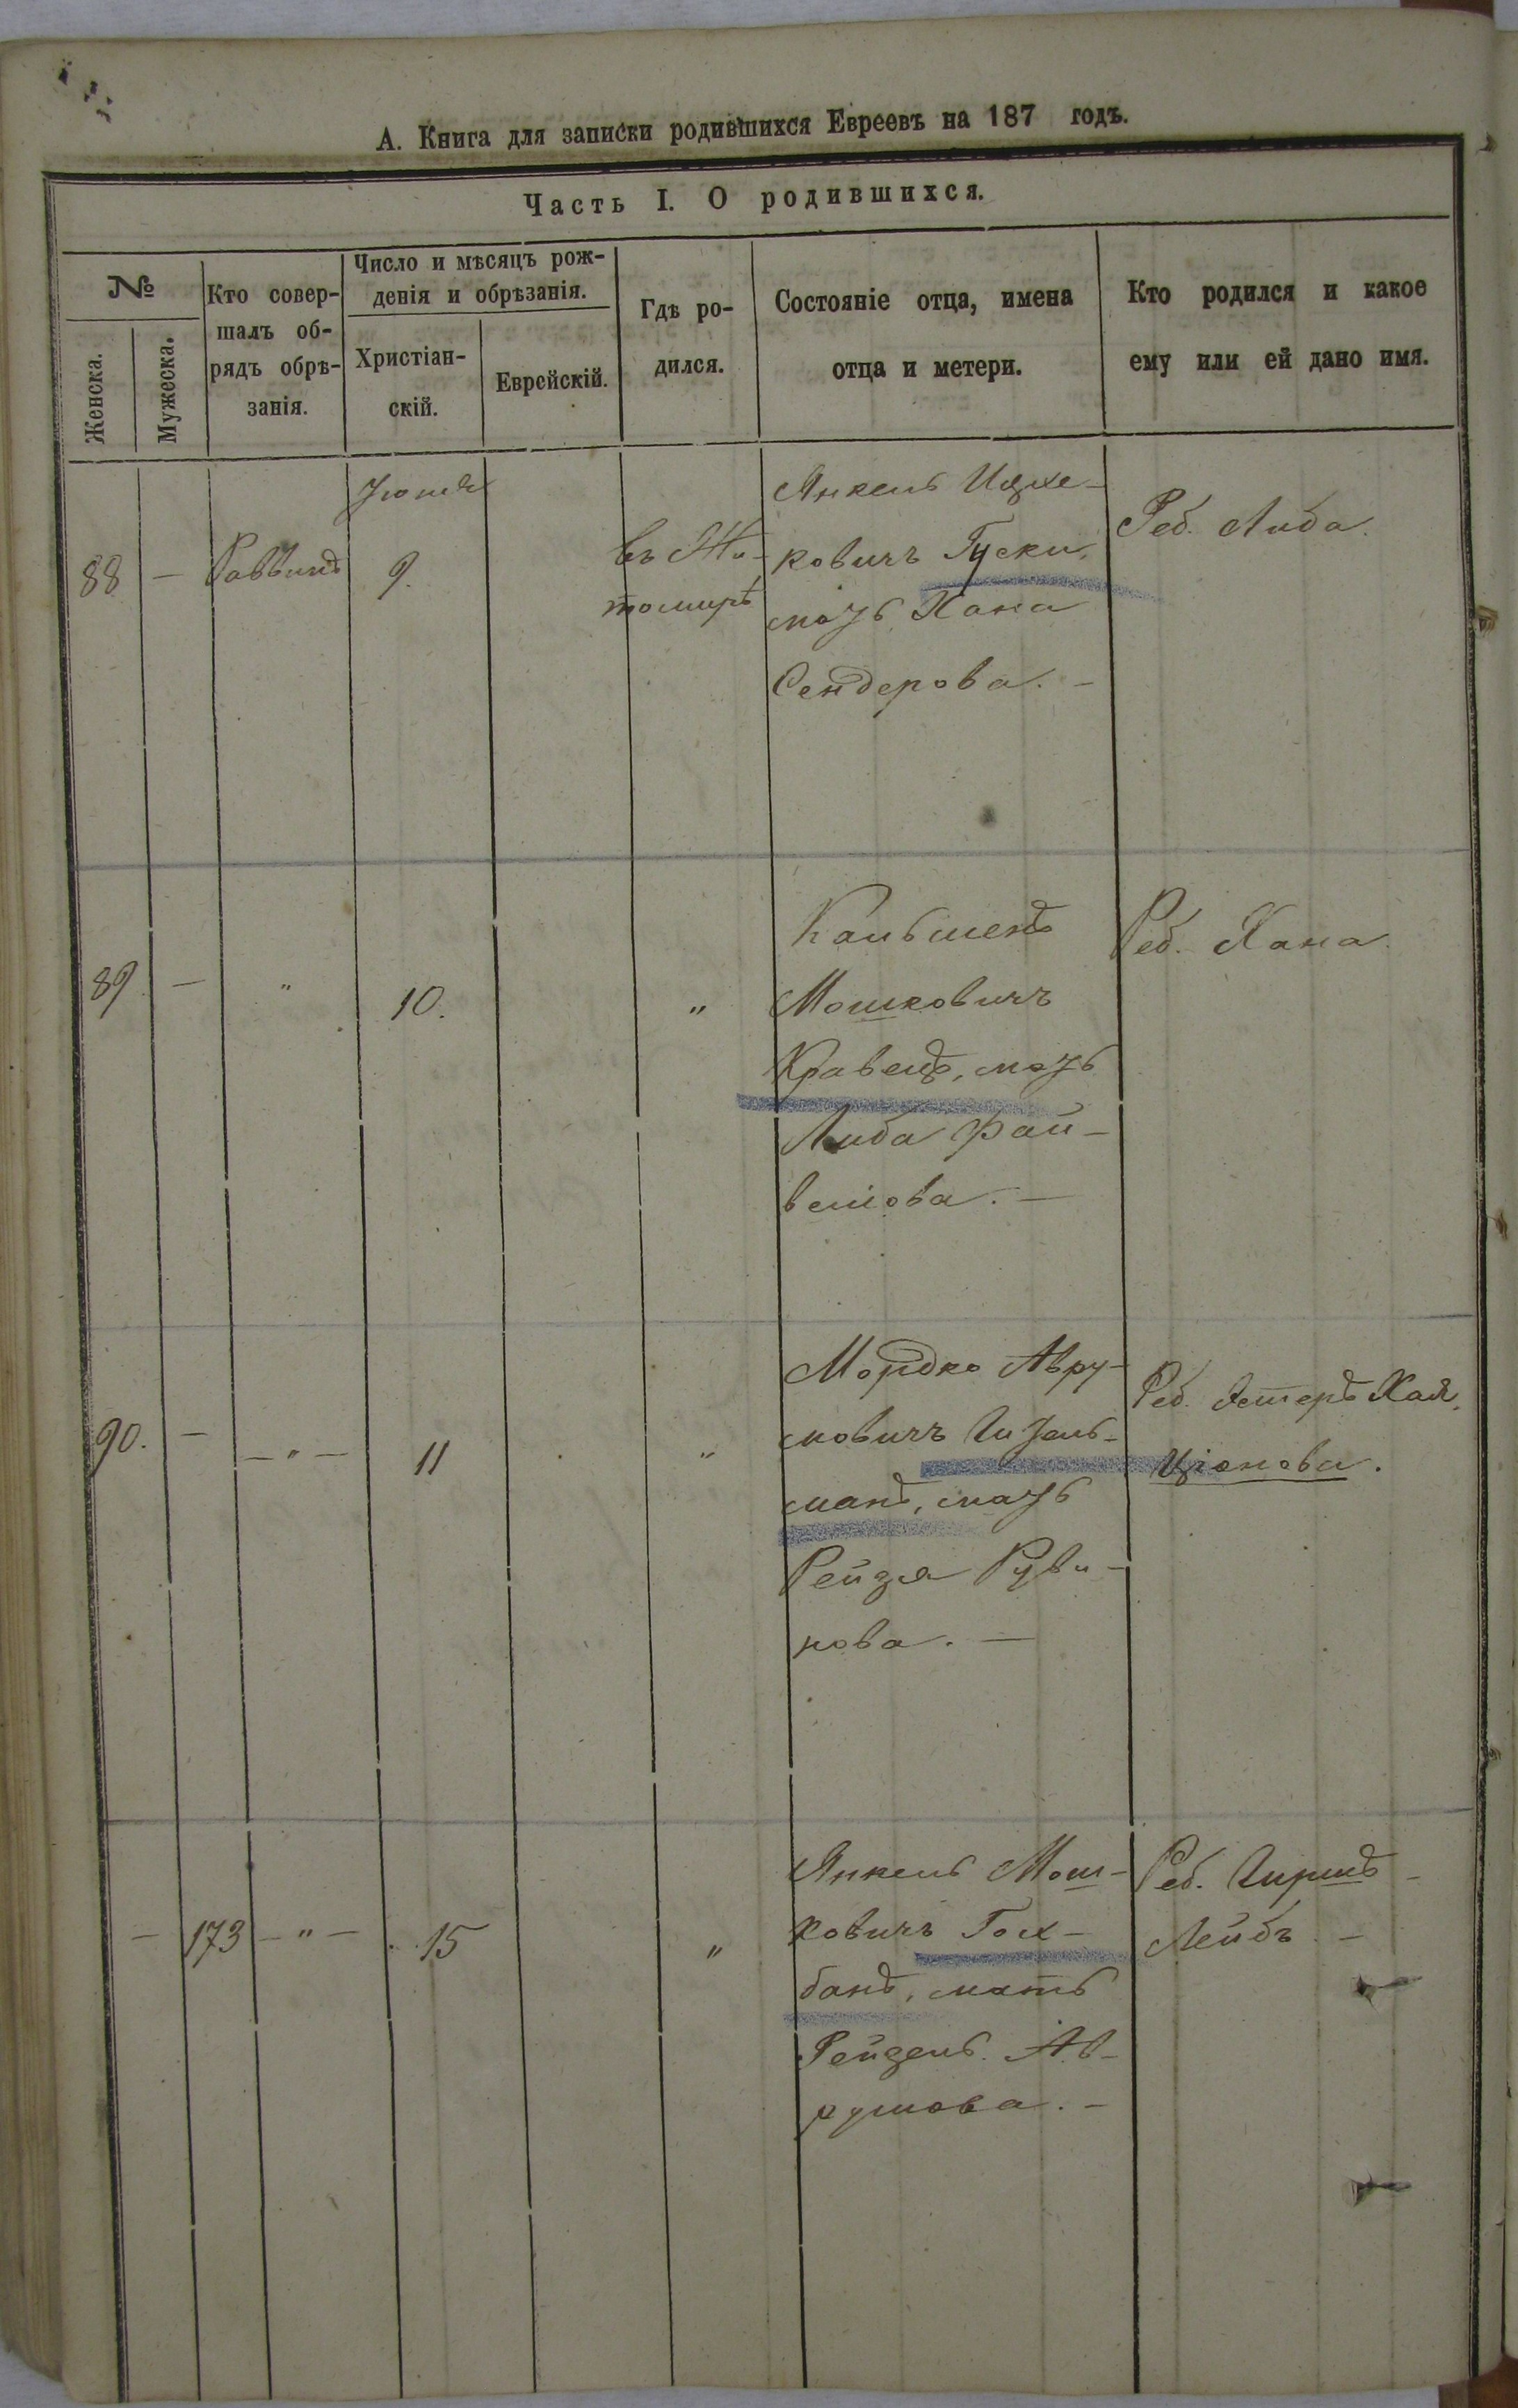 А. Книга для записки родившихся Евреевъ на 187 годъ.
Часть I. О родившихся.
№
Женска.
Мужеска.
Кто совер-
шалъ об-
рядъ обрѣ-
занія.
Число и мѣсяцъ рож-
денія и обрѣзанія.
Христіан-
скій.
Еврейскій.
Гдѣ ро-
дился.
Состояніе отца, имена
отца и метери.
Кто родился и какое
ему или ей дано имя.
88 — Раввинъ
Іюня
9.
въ Жи-
томирѣ
Янкель Ицко-
ковичъ Гуски,
мать Хана
Сендерова. —
Реб. Либа.
89 — " 10. "
Кальменъ
Мошковичъ
Кравецъ, мать
Либа Фай-
велова. —
Реб. Хана.
90. — — " — 11 "
Мордко Авру-
мовичъ Гизель-
манъ, мать
Рейзя Руви-
нова. —
Реб. Эстеръ Хая,
Ціонова.
— 173 — " — 15 "
Янкель Мош-
ковичъ Гох-
банъ, мать
Рейзель Ав-
румова. —
Реб. Гиршъ —
Лейбъ —